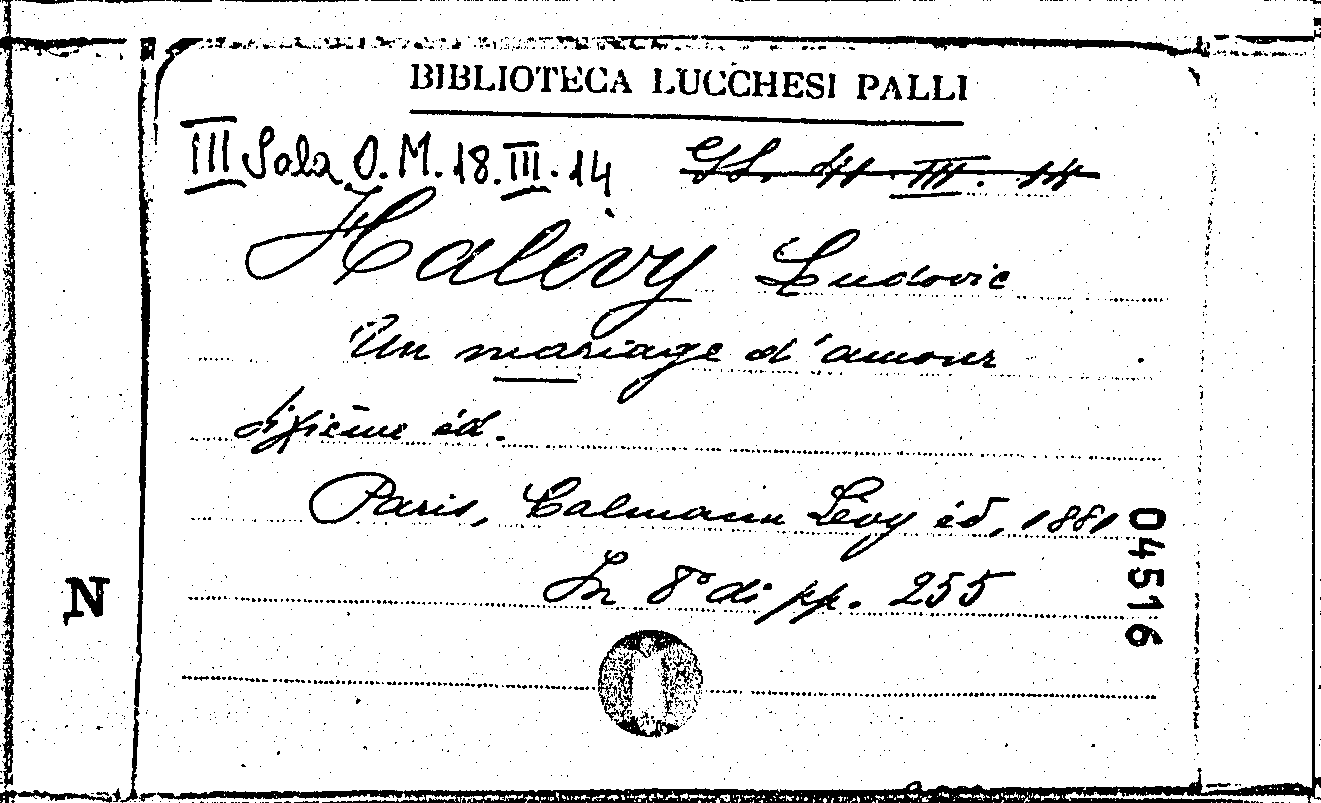 BIBLIOTECA LUCCHESI PALLI
III Sala O.M.18.III.14
Halévy Ludovic
Un mariage d'amour
dixième éd.
Paris, Calmann Lévy éd, 1881
In 8° di pp. 255
04516
N